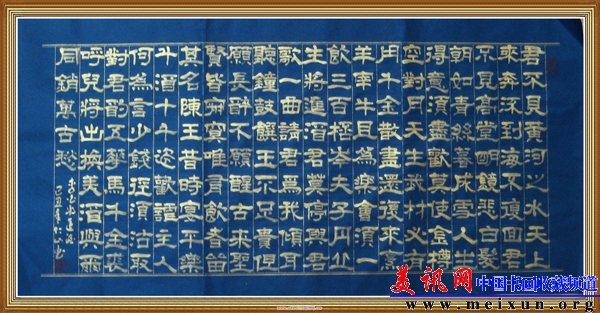 君不見黃河之水天上
來奔流到海不復回君
不見高堂明鏡悲白髮
朝如青絲暮成雪人生
得意須盡歡莫使金樽
空對月天生我材必有
用千金散盡還復來烹
羊宰牛且為樂會須一
飲三百杯岑夫子丹丘
生將進酒君莫停與君
歌一曲請君為我傾耳
聽鐘鼓饌玉不足貴但
願長醉不願醒古來聖
賢皆寂寞唯有飲者留
其名陳王昔時宴平樂
斗酒十千恣歡謔主人
何為言少錢徑須沽取
對君酌五花馬千金裘
呼兒將出換美酒與爾
同銷萬古愁
美讯网 中国书画收藏频道
www.meixun.org